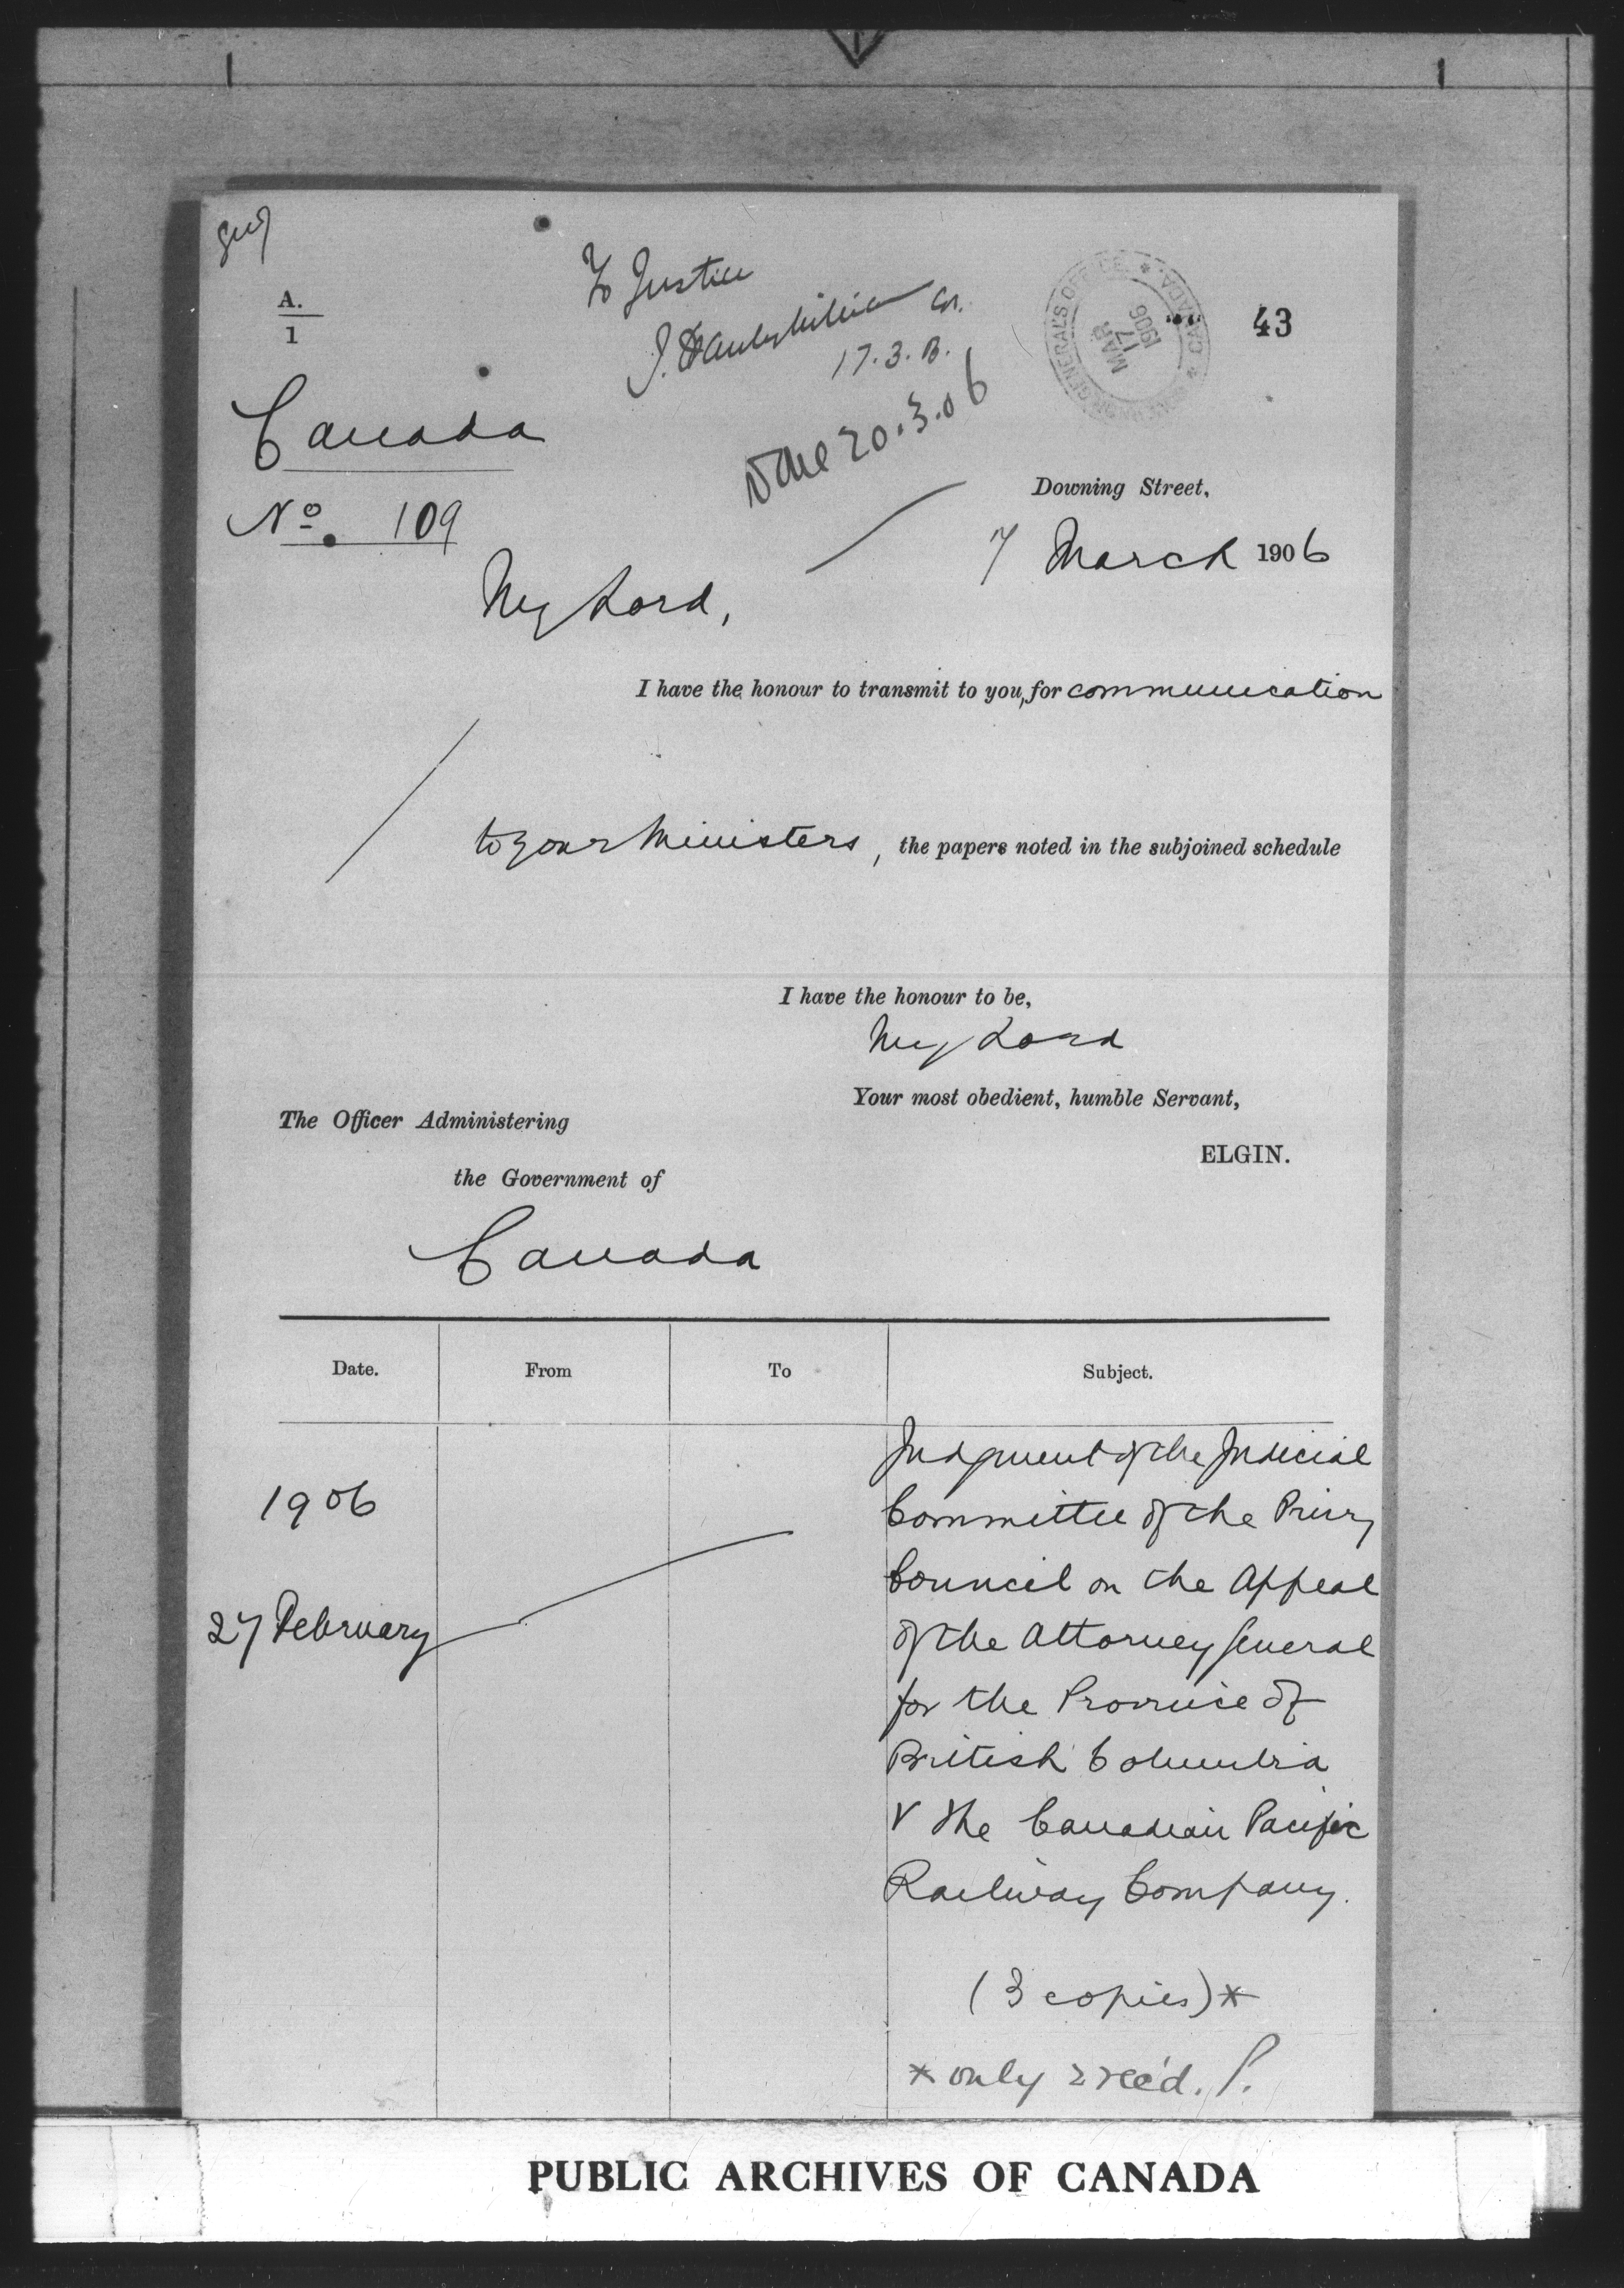 To Justice
17.3.
Done 20.3.06
GOVERNOR GENERAL'S OFFICE * CANADA *
MAR
17
1906
43
A.
1
Canada
No. 109
Downing Street,
7 March 1906
My Lord,
I have the honour to transmit to you, for communication
to your Ministers, the papers noted in the subjoined schedule
I have the honour to be,
My Lord
Your most obedient, humble Servant,
ELGIN.
The Officer Administering
the Government of
Canada
Date. From To Subject.
1906
27 February
Judgment of the Judicial
Committee of the Privy
Council on the Appeal
of the Attorney General
for the Province of
British Columbia
v The Canadian Pacific
Railway Company.
(3 copies)*
* only 2 rec'd. P.
PUBLIC ARCHIVES OF CANADA